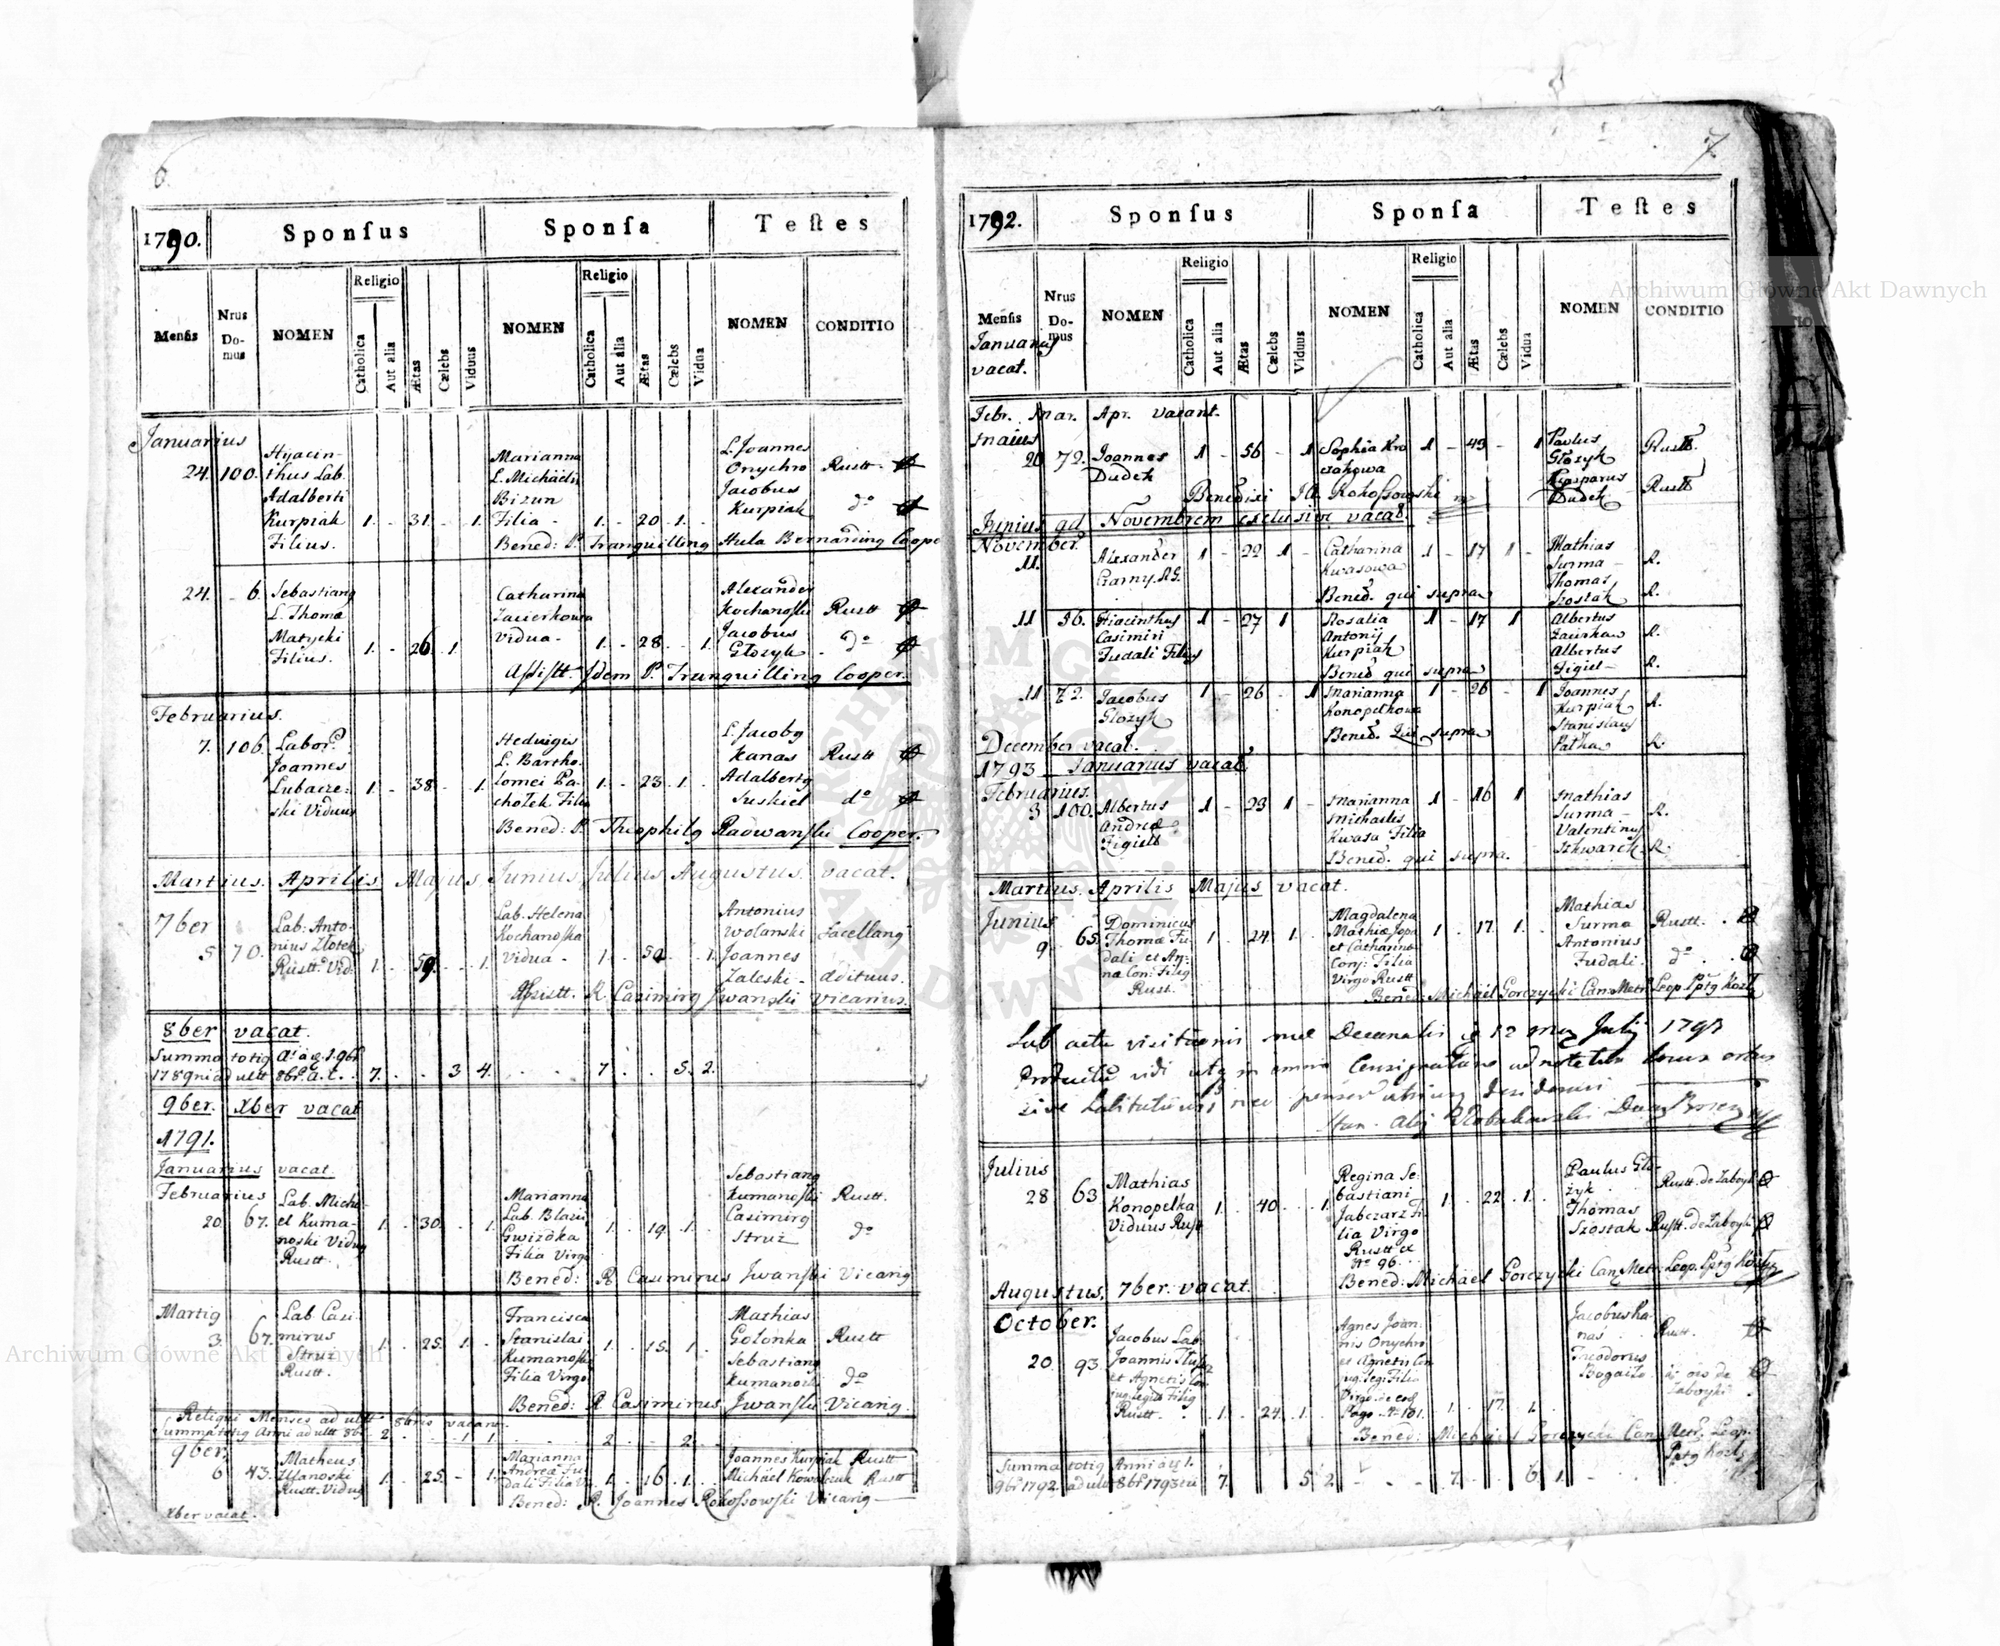 6.
1790.
Sponsus
Sponsa
Testes
Mensis
Nrus Domus
NOMEN
Religio
Catholica
Aut alia
Ætas
Cælebs
Viduus
NOMEN
Religio
Catholica
Aut alia
Ætas
Cælebs
Vidua
NOMEN
CONDITIO
Januarius
24. 100.
Hyacin-
thus Lab.
Adalberti
Kurpiak 1. - 31. - 1.
Filius.
Marianna
L. Michaelis
Bizun
Filia - 1. - 20. 1.
L. Joannes
Onychro Rustt.
Jacobus
Kurpiak do
Bened: P. Tranquilling Hula Bernarding Coope
24. - 6.
Sebastiang
L. Thoma
Matycki
Filius. 1. - 26. 1.
Catharina
Vidua - 1. - 28. . 1.
Alexander
Kochanoski Rustt
Jacobus
Głozyk . do
Assistt. Idem P. Tranquilling Cooper.
Februarius.
7. 106.
Labor.
Joannes
Lubacze-
ski Viduus 1. - 38. 1.
Hedwigis
L. Bartho-
lomei Pa-
chołek Filia 1. - 23. 1.
L. Jacobg
Kanas Rustt
Adalbertg
Suskiel do
Bened: P. Theophilg Radwanski Cooper.
Martius. Aprilis Majus Junius Julius Augustus. vacat.
7ber
5 70.
Lab: Anto-
nius Złotek
Rustt. Vid. 1. . 59. . 1.
Lab. Helena
Kochanoska
Vidua - 1. . 50. 1.
Antonius
Wolanski
Joannes
Zaleski - Adituus.
Assistt. R. Casimirg Jwanski Vicarius.
8ber vacat.
7. . . 3 4. . . 7. . . 5. 2.
9ber. Xber vacat
1791.
Januarius vacat.
Februarius
20. 67.
Lab. Micha-
el Kuma-
noski Vidug
Rustt. 1. . 30. . 1.
Marianna
Lab. Blasii
Gwizdka
Filia Virgo 1. . 19. 1.
Sebastiang
Kumanoski Rustt.
Casimirg
Struz do
Bened: R. Casimirus Jwanski Vicarig
Martig
3. 67.
Lab. Casi-
mirus
Struz
Rustt. 1. . 25. 1.
Francisca
Stanislai
Kumanoski
Filia Virgo 1. . 15. 1.
Mathias
Golonka Rustt
Sebastiang
Kumanoski do
Bened: R. Casimirus Jwanski Vicarig.
Reliqui Menses ad ultt 8bris vacant.
Summa totig Anni ad ultt 8br. 2. . . 1. 1. . . 2. . . 2.
9ber.
6 43.
Matheus
Ulanoski
Rustt. Vidug 1. . 25. - 1.
Marianna
Andreæ Fu-
dali Filia V. 1. . 16. 1.
Joannes Kurpiak Rustt
Michael Kowalczuk Rustt
Bened: R. Joannes Rokossowski Vicarig
Xber vacat.
7.
1792.
Sponsus
Sponsa
Testes
Mensis
Nrus Domus
NOMEN
Religio
Catholica
Aut alia
Ætas
Cælebs
Viduus
NOMEN
Religio
Catholica
Aut alia
Ætas
Cælebs
Vidua
NOMEN
CONDITIO
Januarius
vacat.
Febr. Mar. Apr. vacant.
Maius
20 72.
Joannes
Dudek 1 - 56 - 1
Sophia Kro
czakowa 1 - 43 - 1
Paulus
Głozyk Rustt.
Gasparus
Dudek Rustt
Benedixi J. Rokossowski
Junius ad Novembrem exclusive vacat.
November.
11.
Alexander
Czarny. 1 - 22 1 -
Catharina
Kwasowa 1 - 17 1 -
Mathias
Surma - R.
Thomas
Szostak R.
Bened. qui supra
11 36.
Hiacinthus
Casimiri
Fudali Filius 1 - 27 1
Rosalia
Antonij
Kurpiak 1 - 17 1
Albertus
R.
Albertus
Figiel - R.
Bened qui supra
11 72.
Jacobus
Głozyk 1 - 26 - 1
Marianna
Konopelkowa 1 - 26 - 1
Joannes
Kurpiak R.
Stanislaus
Patka R.
Bened. Qui supra
December vacat.
1793 Januarius vacat.
Februarius.
3 100.
Albertus
Andreæ
Figiell 1 - 23 1 -
Marianna
Michaelis
Kwasa Filia 1 - 16 1
Mathias
Surma - R.
Valentinus
Szkwarek R.
Bened. qui supra.
Martius. Aprilis Majus vacat.
Junius
9. 65.
Dominicus
Thomæ Fu-
dali et An-
na Con: Filig
Rust. 1. . 24. 1.
Magdalena
Mathiæ
et Catharina
Conj: Filia
Virgo Rustt 1. . 17. 1.
Mathias
Surma Rustt.
Antonius
Fudali. do
Bened: Michael Gorczycki Can: Metr: Leop. Pptg Kozl
Julius
28 63
Mathias
Konopelka
Viduus Rust 1. . 40. . 1.
Regina Se-
bastiani
Jabczarz Fi-
lia Virgo
Rustt ex
No 96. 1. . 22. 1.
Paulus Glo-
zyk Rustt. de Zaboyki
Thomas
Szostak Rustt. de Zaboyki
Bened: Michael Gorczycki Can: Metr: Leop. Pptg Kozl
Augustus, 7ber. vacat.
October.
20. 93.
Jacobus Lab.
Joannis
et Agnetis Con
jug: legit: Filig
Rustt. . 1. . 24. 1.
Agnes Joan-
nis Onychro
et Agnetis Con
jug: leg: Filia
Virgo de eod
Pago No 181. 1. . 17. 1.
Jacobus Ka-
nas . Rustt.
Theodorus
Zaboyki
Bened: Michael Gorczycki Can: Metr. Leop.
Pptg Kozl
Summa totig Anni à 1.
9br 1792. ad ultt 8br 1793 7. . . 5 2. - - 7. . . 6. 1.
Archiwum Główne Akt Dawnych
Archiwum Główne Akt Dawnych
ARCHIWUM GŁÓWNE AKT DAWNYCH